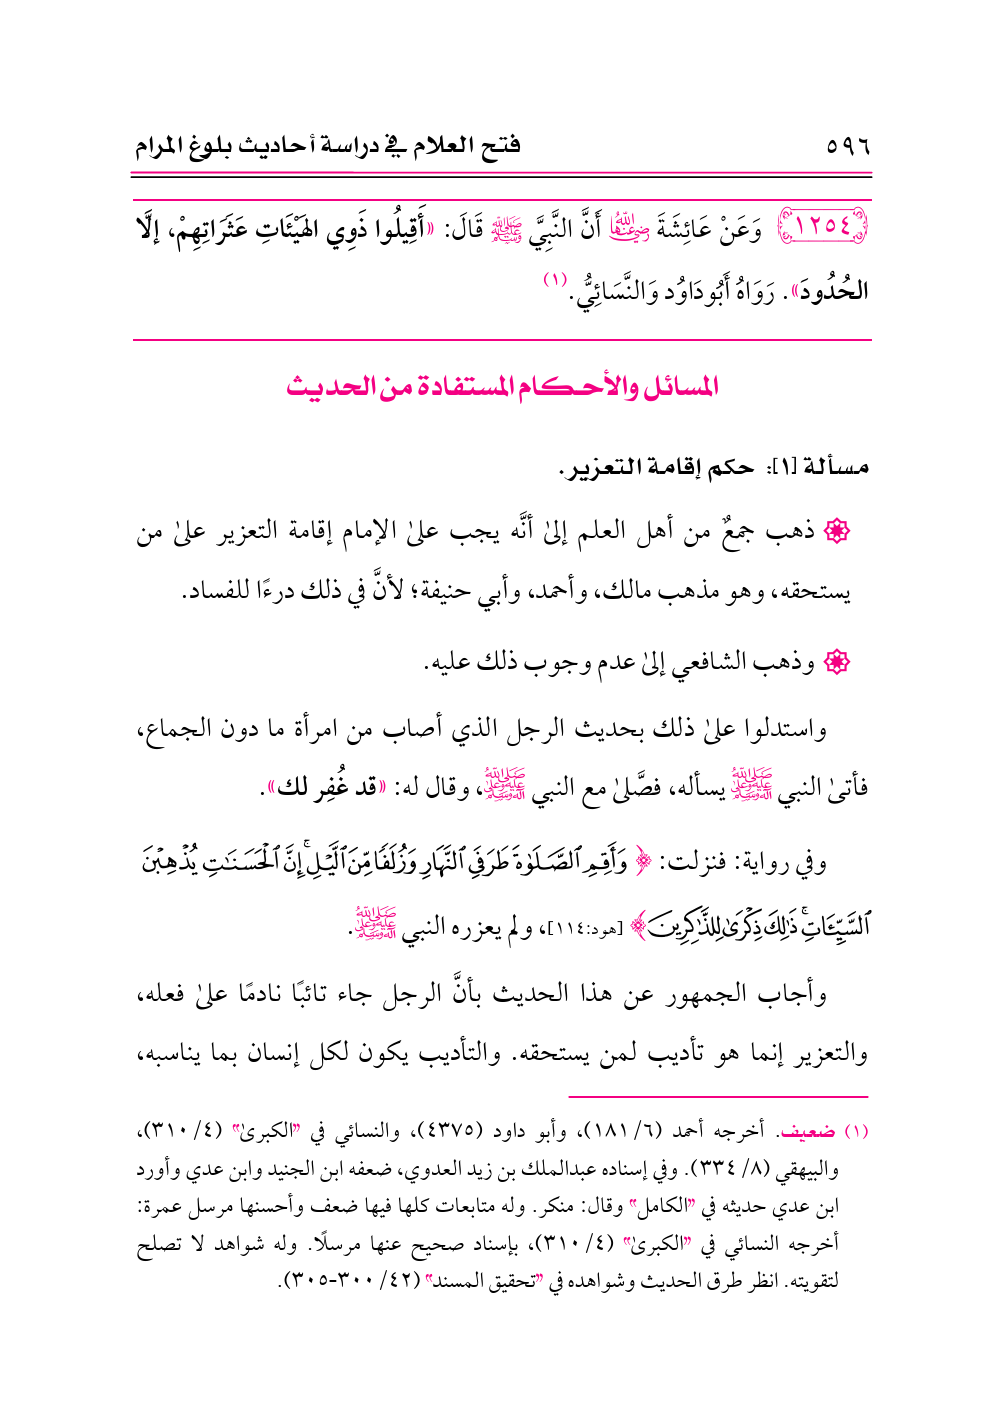 ٥٩٦ فتح العلام في دراسة أحاديث بلوغ المرام
١٢٥٤ وَعَنْ عَائِشَةَ رضي الله عنها أَنَّ النَّبِيَّ ﷺ قَالَ: «أَقِيلُوا ذَوِي الهَيْئَاتِ عَثَرَاتِهِمْ، إلَّا
الحُدُودَ». رَوَاهُ أَبُودَاوُد وَالنَّسَائِيُّ.(١)
المسائل والأحكام المستفادة من الحديث
مسألة [١]: حكم إقامة التعزير.
ذهب جمعٌ من أهل العلم إلىٰ أنَّه يجب علىٰ الإمام إقامة التعزير علىٰ من
يستحقه، وهو مذهب مالك، وأحمد، وأبي حنيفة؛ لأنَّ في ذلك درءًا للفساد.
وذهب الشافعي إلىٰ عدم وجوب ذلك عليه.
واستدلوا علىٰ ذلك بحديث الرجل الذي أصاب من امرأة ما دون الجماع،
فأتىٰ النبي ﷺ يسأله، فصَّلىٰ مع النبي ﷺ، وقال له: «قد غُفِر لك».
وفي رواية: فنزلت: ﴿وَأَقِمِ ٱلصَّلَوٰةَ طَرَفَيِ ٱلنَّهَارِ وَزُلَفًا مِّنَ ٱلَّيۡلِۚ إِنَّ ٱلۡحَسَنَٰتِ يُذۡهِبۡنَ
ٱلسَّيِّـَٔاتِۚ ذَٰلِكَ ذِكۡرَىٰ لِلذَّٰكِرِينَ﴾ [هود:١١٤]، ولم يعزره النبي ﷺ.
وأجاب الجمهور عن هذا الحديث بأنَّ الرجل جاء تائبًا نادمًا علىٰ فعله،
والتعزير إنما هو تأديب لمن يستحقه. والتأديب يكون لكل إنسان بما يناسبه،
(١) ضعيف. أخرجه أحمد (٦/ ١٨١)، وأبو داود (٤٣٧٥)، والنسائي في "الكبرىٰ" (٤/ ٣١٠)،
والبيهقي (٨/ ٣٣٤). وفي إسناده عبدالملك بن زيد العدوي، ضعفه ابن الجنيد وابن عدي وأورد
ابن عدي حديثه في "الكامل" وقال: منكر. وله متابعات كلها فيها ضعف وأحسنها مرسل عمرة:
أخرجه النسائي في "الكبرىٰ" (٤/ ٣١٠)، بإسناد صحيح عنها مرسلًا. وله شواهد لا تصلح
لتقويته. انظر طرق الحديث وشواهده في "تحقيق المسند" (٤٢/ ٣٠٠-٣٠٥).